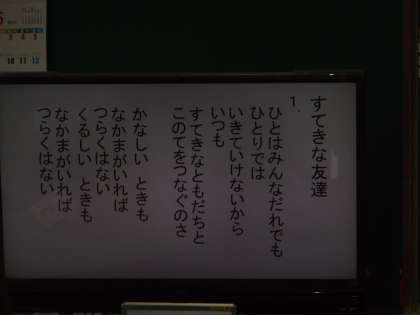 すてきな友達
1.
ひとはみんなだれでも
ひとりでは
いきていけないから
いつも
すてきなともだちと
このてをつなぐのさ
かなしい ときも
なかまがいれば
つらくはない
くるしい ときも
なかまがいれば
つらくはない
3 4 5
10 11 12